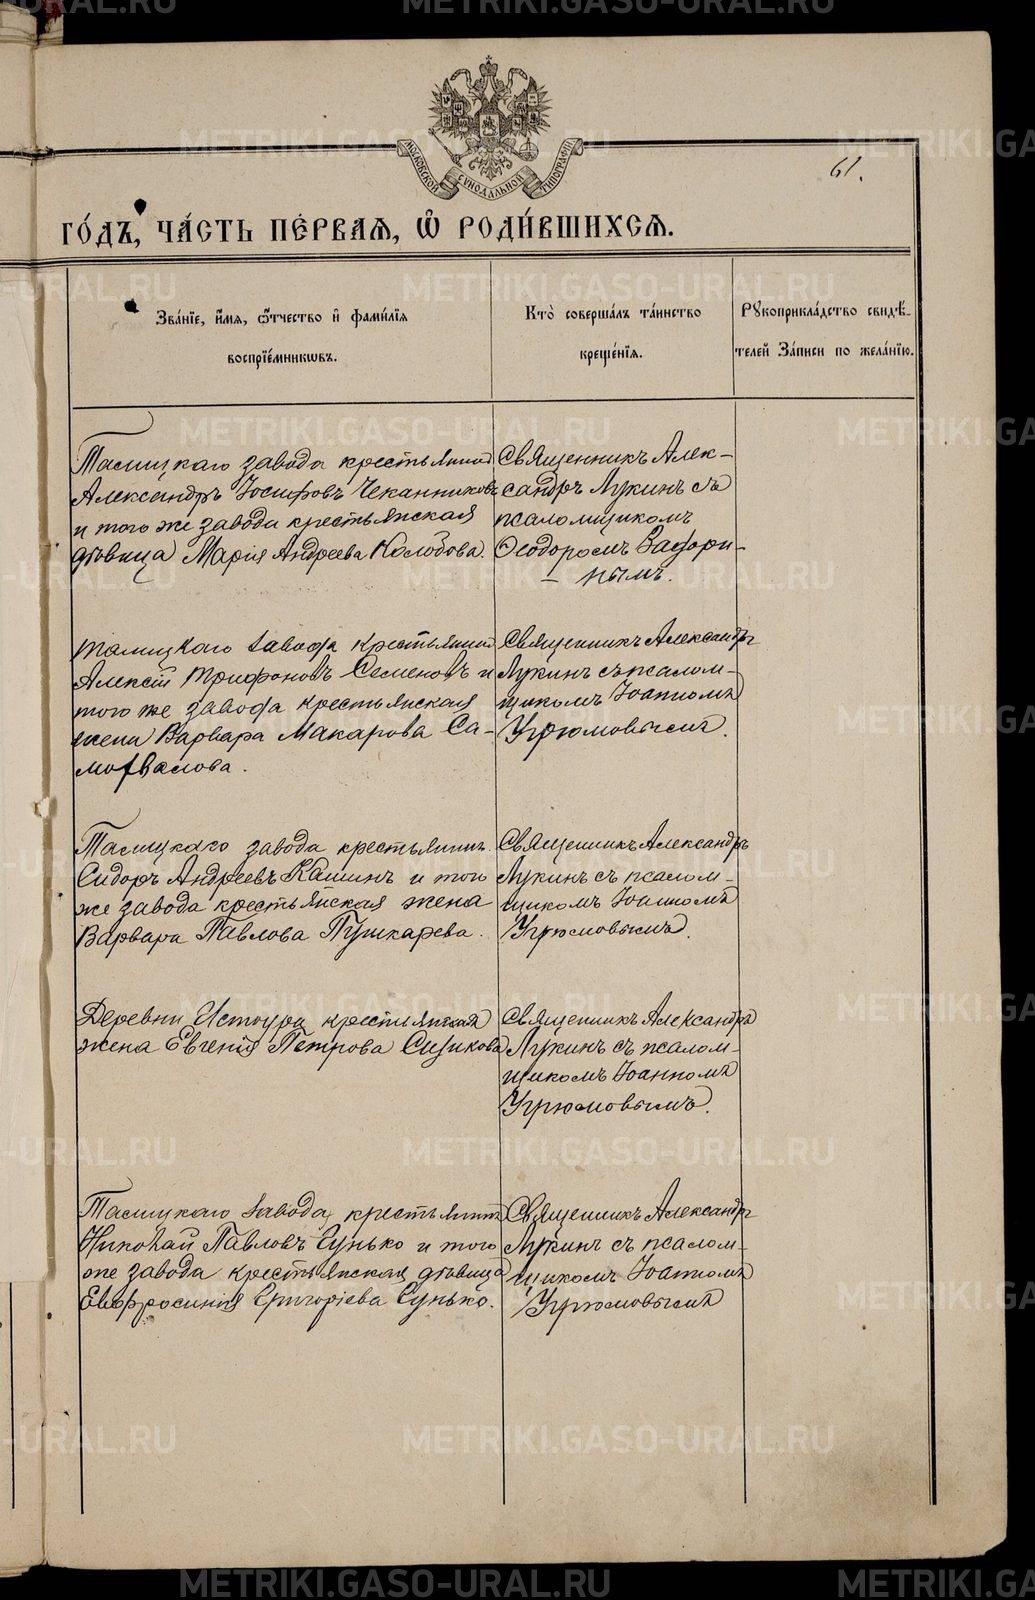 МОСКОВСКОЙ СУНОДАЛЬНОЙ ТИПОГРАФІИ
61.
ГО́ДЪ, ЧА́СТЬ ПЕ́РВАЯ, Ѽ РОДИ́ВШИХСЯ.
Зва́нїе, и҆́мя, ѻ҆́тчество и҆ фами́лїя
воспрїе́мникѡвъ.
Кто̀ соверша́лъ та́инство
креще́нїя.
Рꙋкоприкла́дство свидѣ́-
телей За́писи по жела́нїю.
Талицкаго завода крестьянинъ
Александръ Іосифовъ Чеканниковъ
и того же завода крестьянская
дѣвица Марія Андреева Колобова.
Священникъ Алек-
сандръ Лукинъ съ
псаломщикомъ
Ѳеодоромъ Задори-
нымъ.
Талицкаго завода крестьянинъ
Алексій Трифоновъ Семеновъ и
того же завода крестьянская
жена Варвара Макарова Са-
мохвалова.
Священникъ Александръ
Лукинъ съ псалом-
щикомъ Іоанномъ
Угрюмовымъ.
Талицкаго завода крестьянинъ
Сидоръ Андреевъ Кашинъ и того
же завода крестьянская жена
Варвара Павлова Пушкарева.
Священникъ Александръ
Лукинъ съ псалом-
щикомъ Іоанномъ
Угрюмовымъ.
Деревни крестьянская
жена Евгенія Петрова Сизикова
Священникъ Александръ
Лукинъ съ псалом-
щикомъ Іоанномъ
Угрюмовымъ.
Талицкаго завода крестьянинъ
Николай Павловъ Сунько и того
же завода крестьянская дѣвица
Евфросинія Григоріева Сунько.
Священникъ Александръ
Лукинъ съ псалом-
щикомъ Іоанномъ
Угрюмовымъ
METRIKI.GASO-URAL.RU